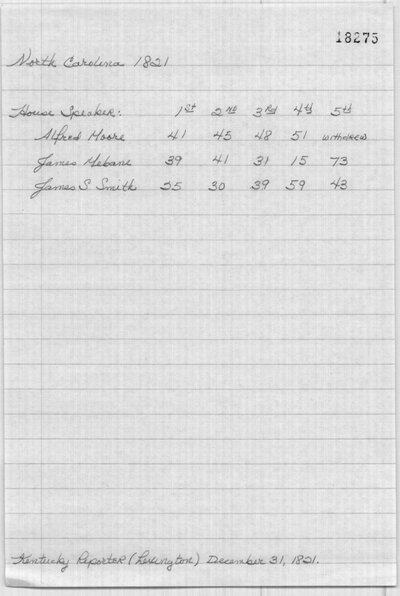 18275
North Carolina 1821
House Speaker: 1st 2nd 3rd 4th 5th
Alfred Moore 41 45 48 51 withdrew
James Mebane 39 41 31 15 73
James S Smith 35 30 39 59 43
Kentucky Reporter (Lexington) December 31, 1821.